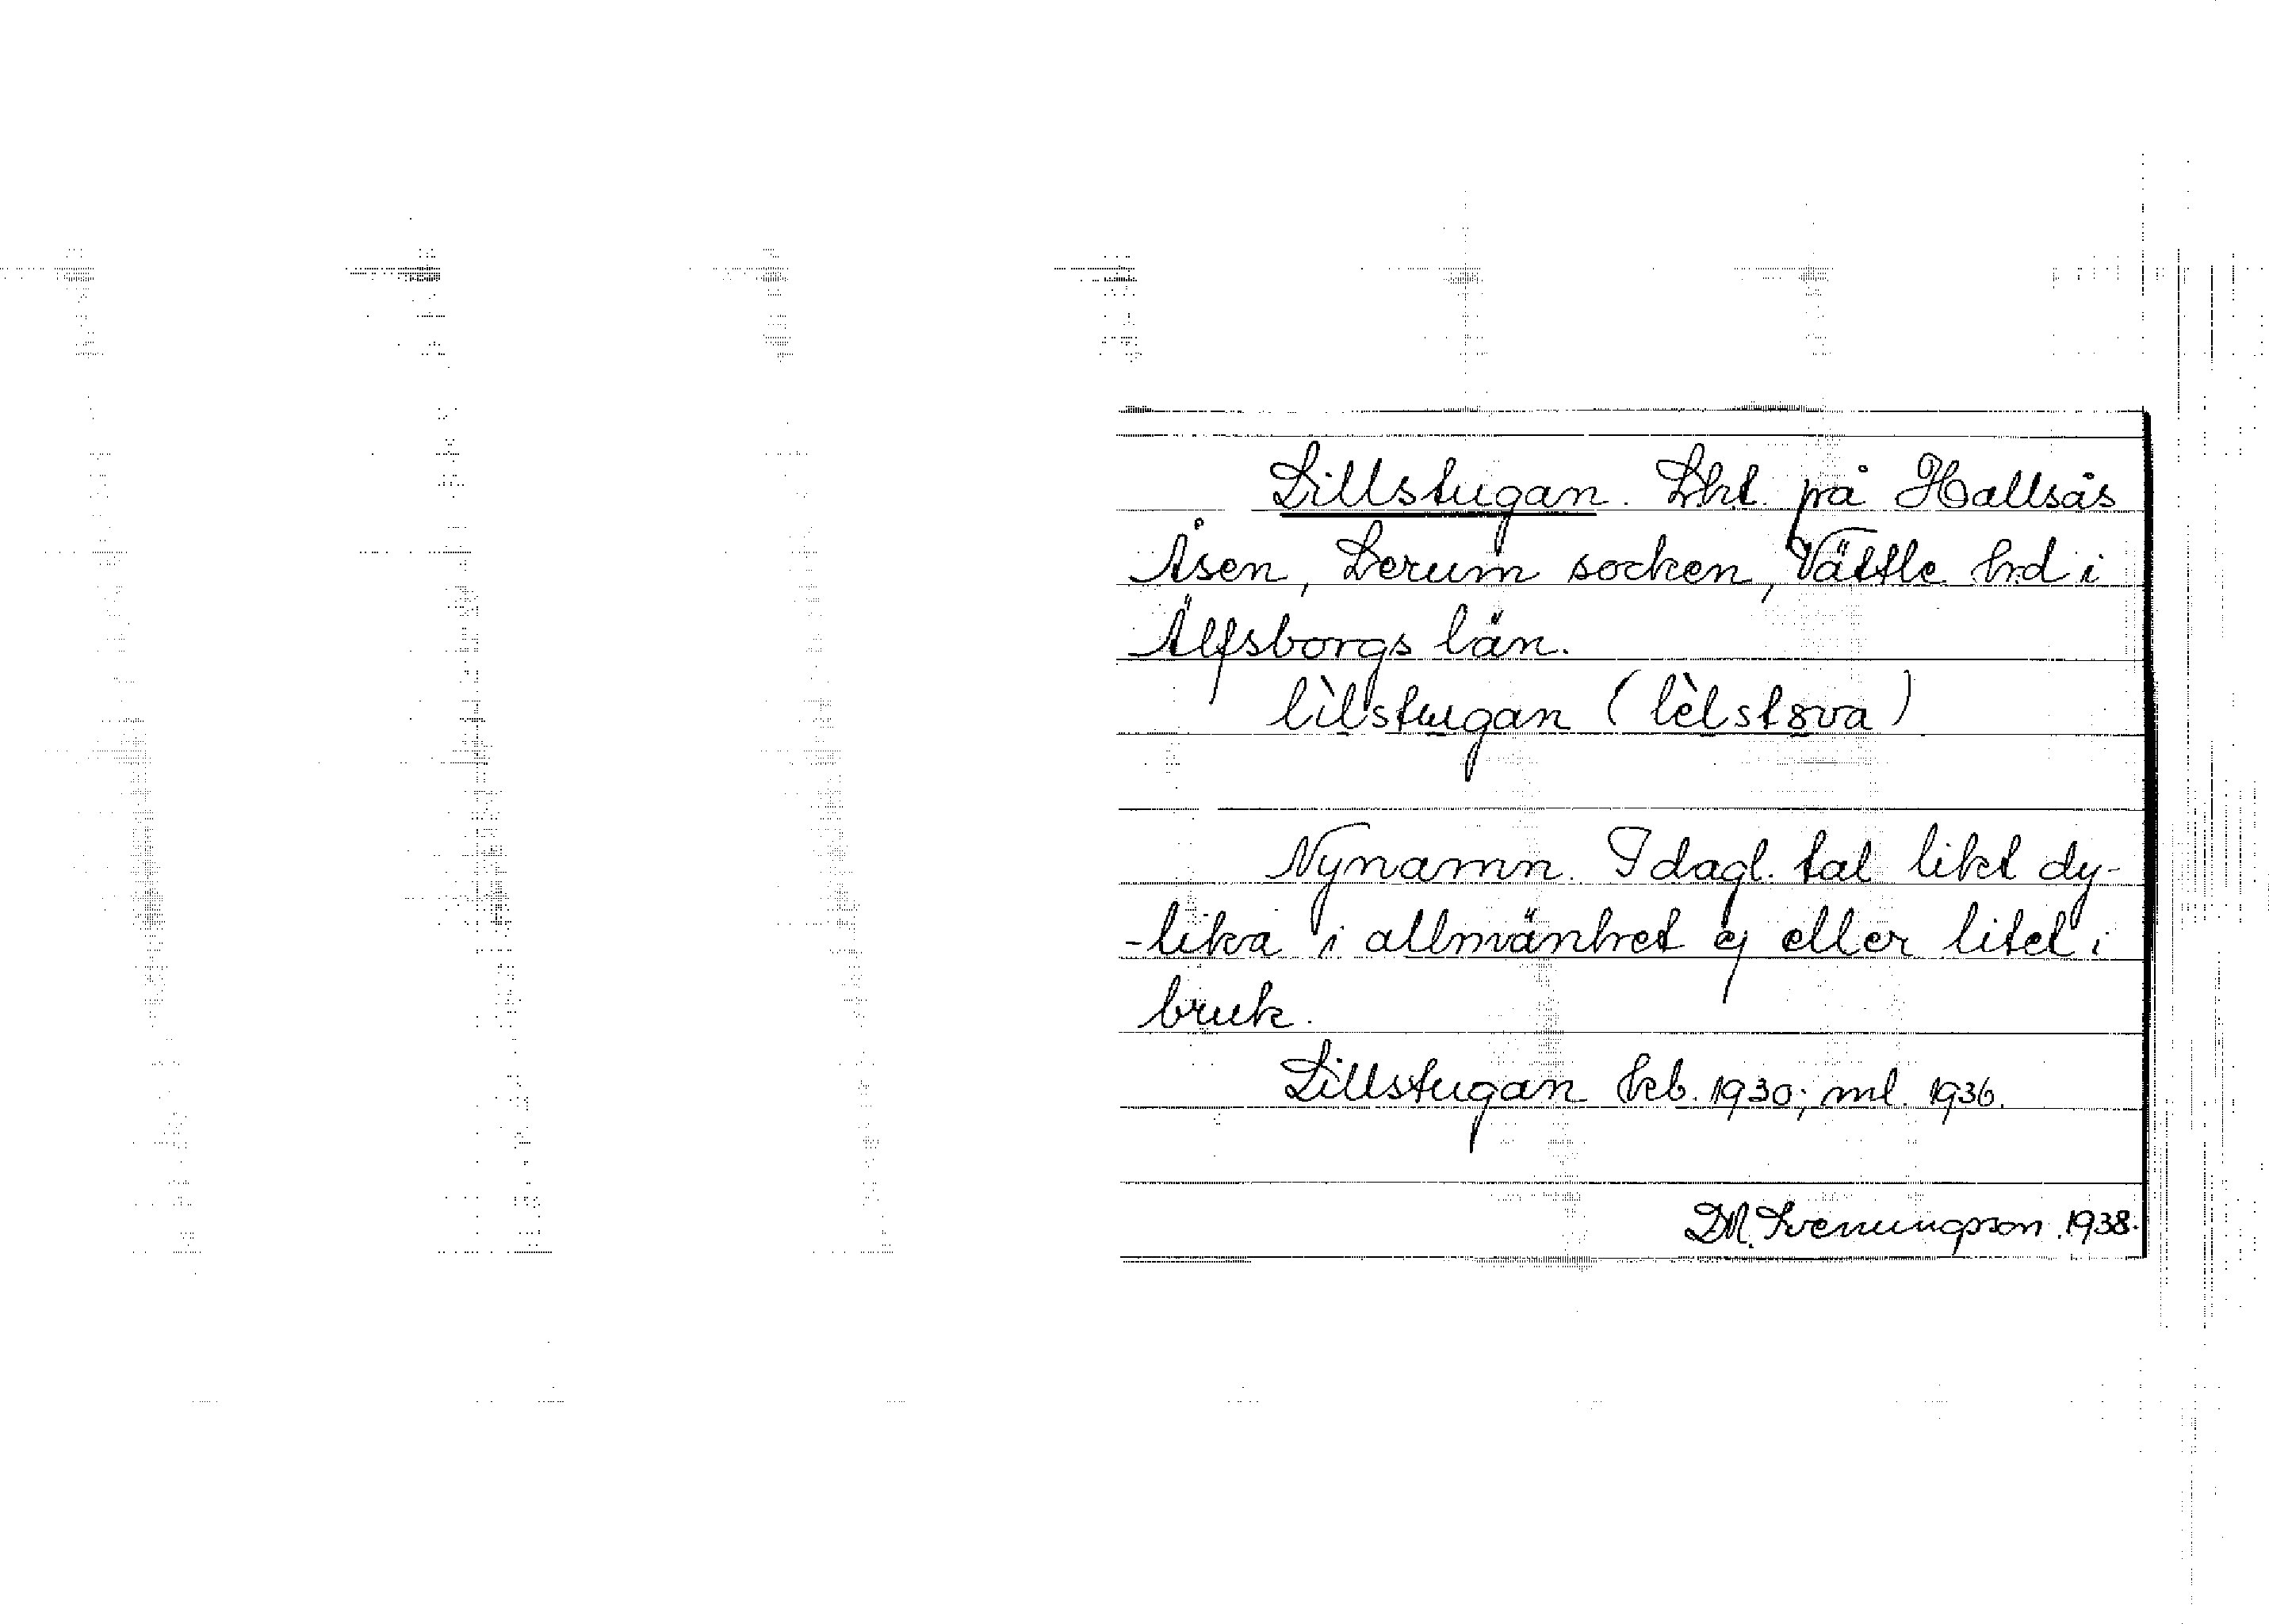 Lillstugan. Lht. på Hallsås
Åsen, Lerum socken, Vättle hd i
Älfsborgs län.
lìlstugan (lèlstova)
Nynamn. I dagl. tal likt dy-
-lika i allmänhet ej eller litet i
bruk.
Lillstugan kb. 1930; ml. 1936.
D.M. Svenungsson. 1938.